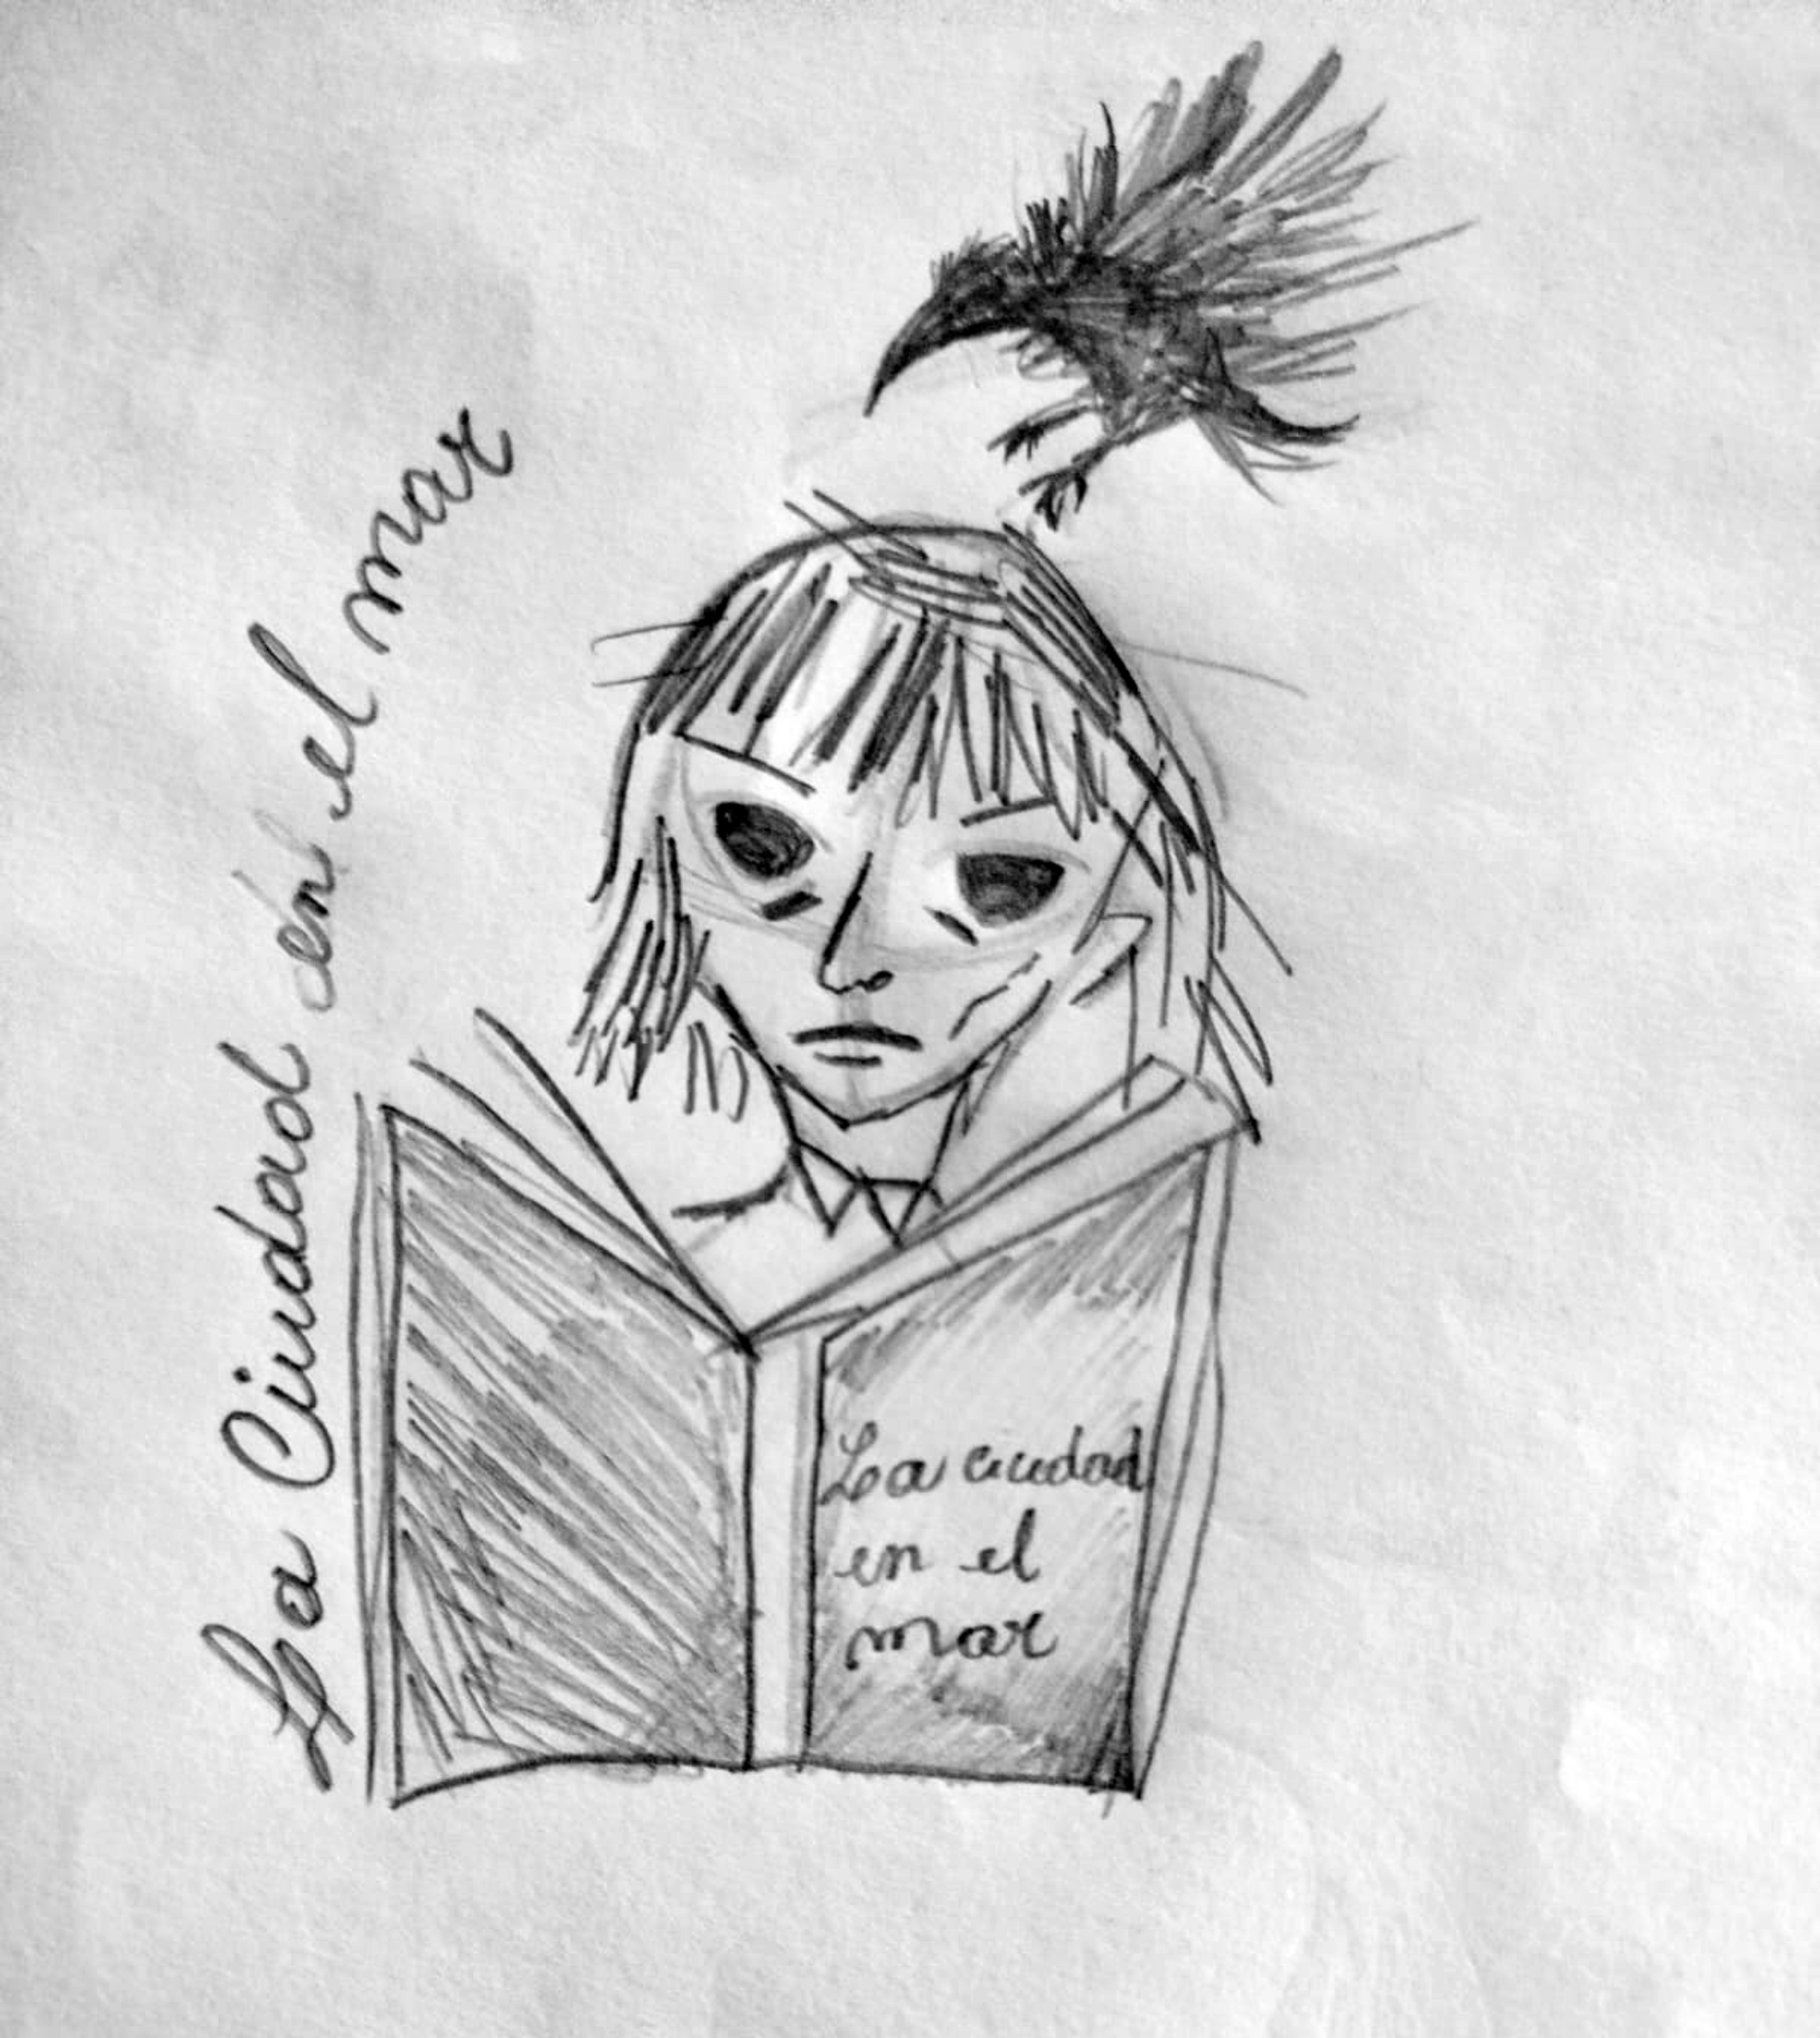 La Ciudad en el mar
La ciudad
en el
mar